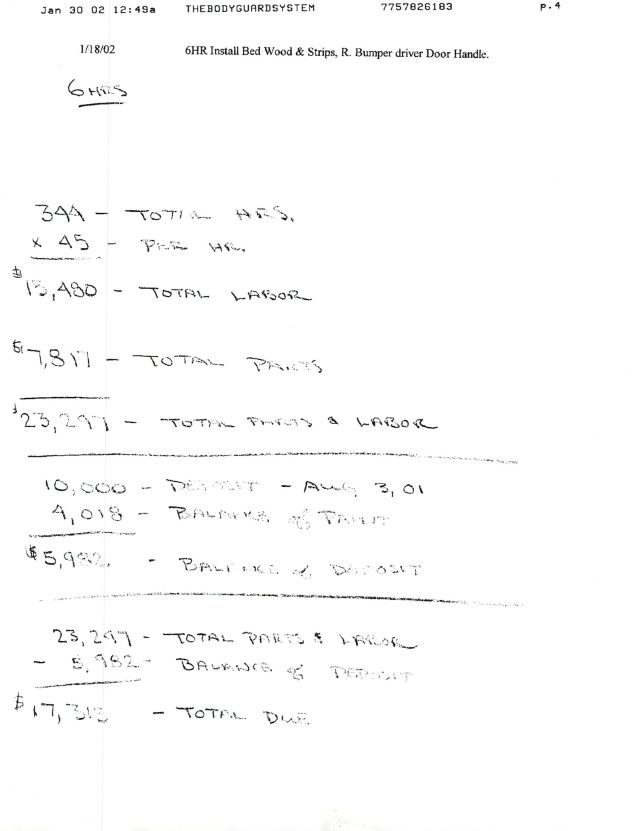 Jan 30 02 12:49a THEBODYGUARDSYSTEM 7757826183 p.4
1/18/02 6HR Install Bed Wood & Strips, R. Bumper driver Door Handle.
6 HRS
344 - TOTAL HRS.
x 45 - PER HR.
$15,480 - TOTAL LABOR
$7,817 - TOTAL PARTS
$23,297 - TOTAL PARTS & LABOR
10,000 - DEPOSIT - AUG 3, 01
4,018 - BALANCE of PAINT
$5,982 - BALANCE of DEPOSIT
23,297 - TOTAL PARTS & LABOR
- 5,982 - BALANCE of DEPOSIT
$17,315 - TOTAL DUE